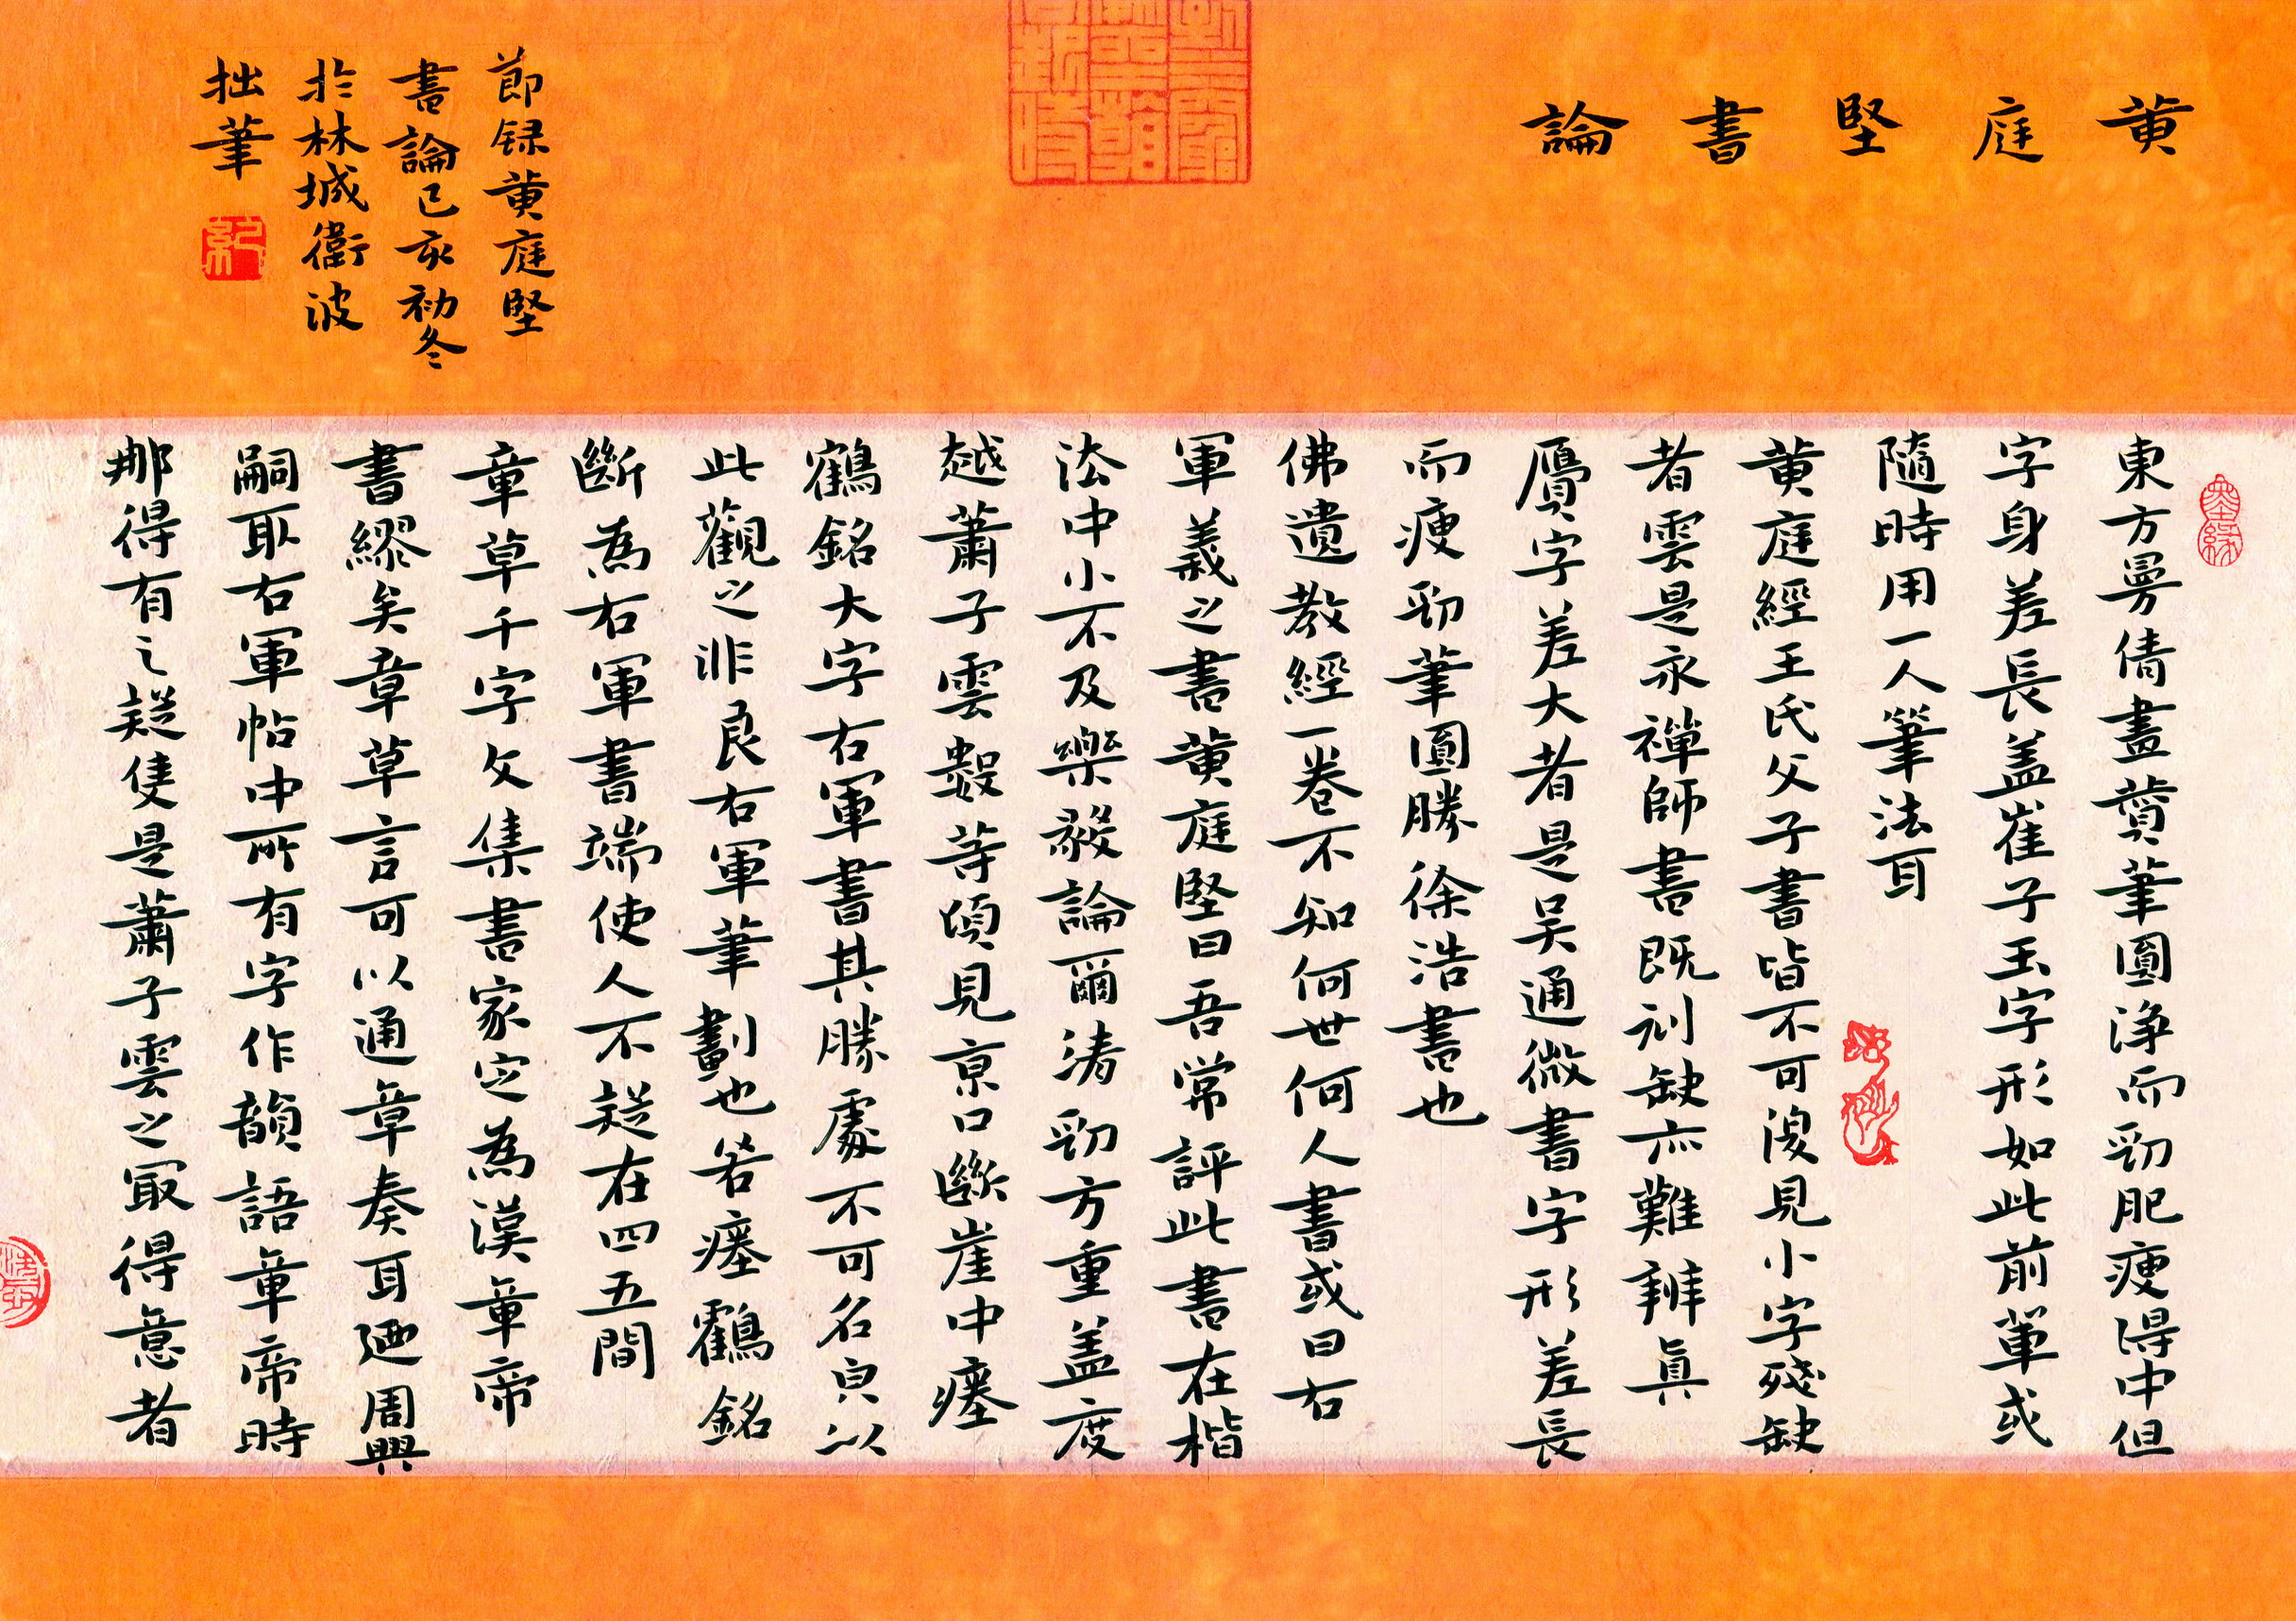 黄庭堅書論
東方曼倩畫贊筆圓淨而勁肥瘦得中但
字身差長蓋崔子玉字形如此前輩或
隨時用一人筆法耳
黄庭經王氏父子書皆不可復見小字殘缺
者雲是永禪師書既刓缺亦難辨真
贗字差大者是吴通微書字形差長
而瘦勁筆圓勝徐浩書也
佛遺教經一卷不知何世何人書或曰右
軍羲之書黄庭堅曰吾常評此書在楷
法中小不及樂毅論爾清勁方重蓋度
越蕭子雲數等頃見京口斷崖中瘞
鶴銘大字右軍書其勝處不可名皃以
此觀之非良右軍筆劃也若瘞鶴銘
斷為右軍書端使人不疑在四五間
章草千字文集書家定為漢章帝
書繆矣章草言可以通章奏耳廼周興
嗣取右軍帖中所有字作韻語章帝時
那得有之疑隻是蕭子雲之最得意者
節録黄庭堅
書論己亥初冬
於林城衛波
拙筆